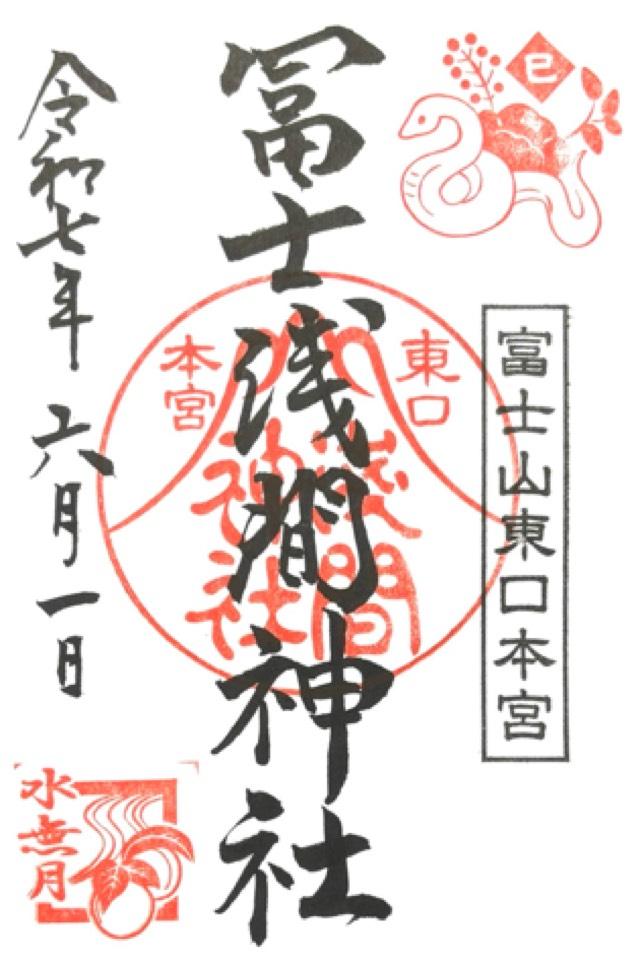 巳
富士山東口本宮
冨士浅間神社
東口
本宮
浅間
神社
令和七年 六月一日
水無月